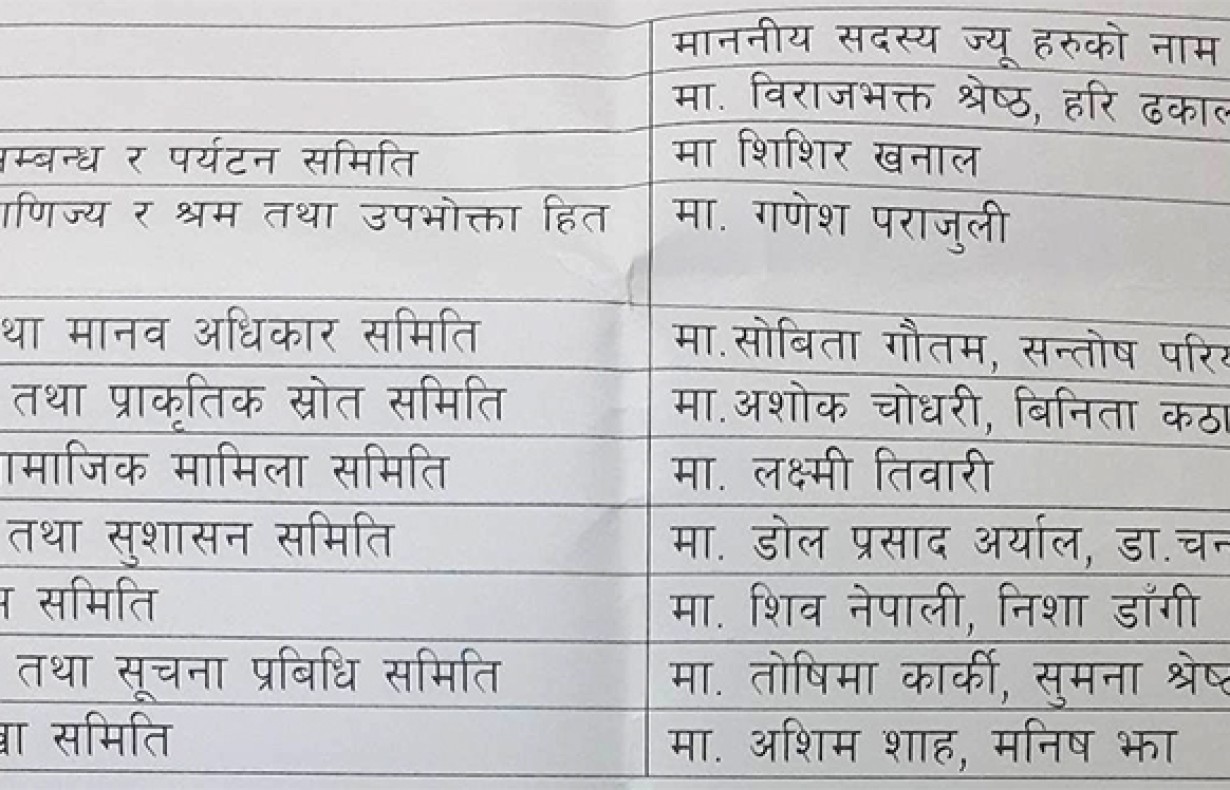 माननीय सदस्य ज्यू हरुको नाम
मा. विराजभक्त श्रेष्ठ, हरि ढकाल
म्बन्ध र पर्यटन समिति मा शिशिर खनाल
णिज्य र श्रम तथा उपभोक्ता हित मा. गणेश पराजुली
था मानव अधिकार समिति मा.सोबिता गौतम, सन्तोष परिय
तथा प्राकृतिक स्रोत समिति मा.अशोक चोधरी, बिनिता कठा
ामाजिक मामिला समिति मा. लक्ष्मी तिवारी
तथा सुशासन समिति मा. डोल प्रसाद अर्याल, डा.चन
समिति मा. शिव नेपाली, निशा डाँगी
तथा सूचना प्रबिधि समिति मा. तोषिमा कार्की, सुमना श्रेष्ठ
समिति मा. अशिम शाह, मनिष झा